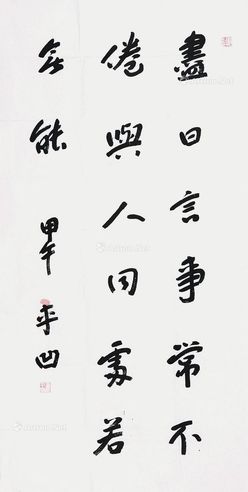 盡日言事常不
倦與人同處若
無能
甲午 平凹
Artron.Net